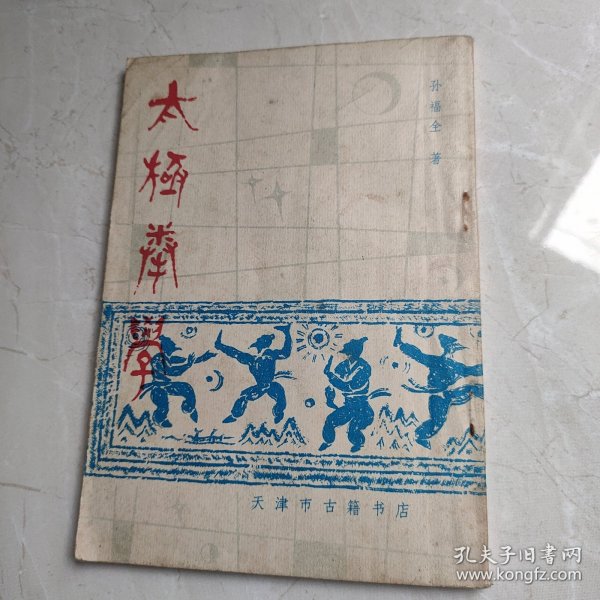 太極拳學
孙福全 著
天津市古籍书店
孔夫子旧书网
www.kongfz.com